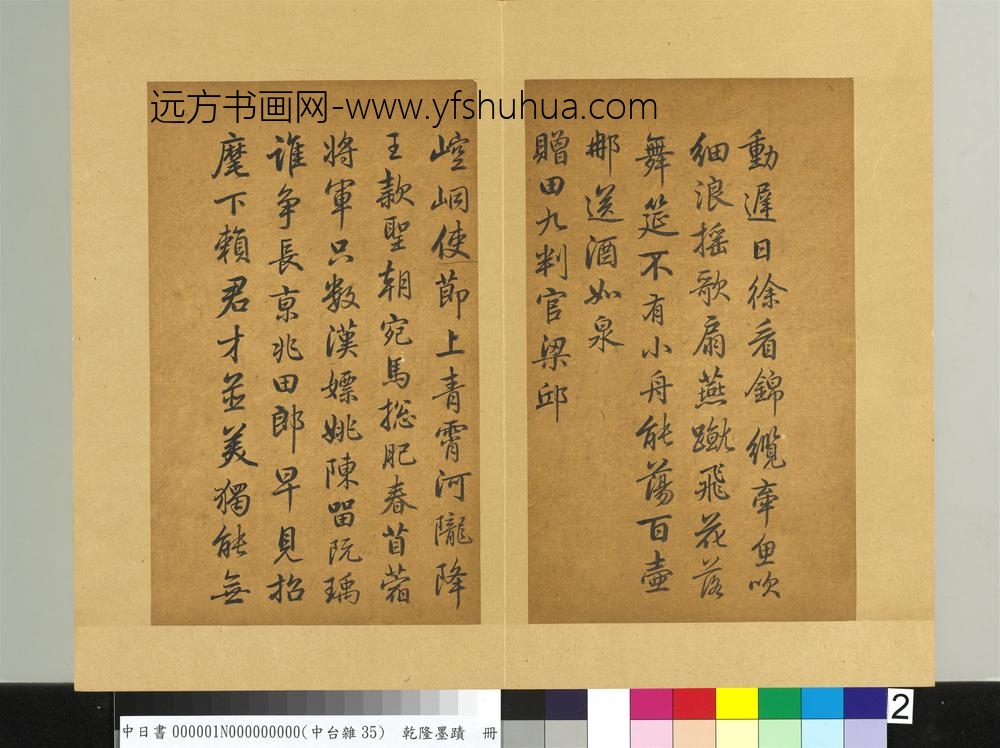 远方书画网-www.yfshuhua.com
動遲日徐看錦纜牽魚吹
細浪搖歌扇燕蹴飛花落
舞筵不有小舟能蕩百壺
那送酒如泉
贈田九判官梁邱
崆峒使節上青霄河隴降
王款聖朝宛馬總肥春苜蓿
將軍只數漢嫖姚陳留阮瑀
誰爭長京兆田郎早見招
麾下賴君才並美獨能無
中日書 000001N000000000(中台雜 35) 乾隆墨蹟 冊
2